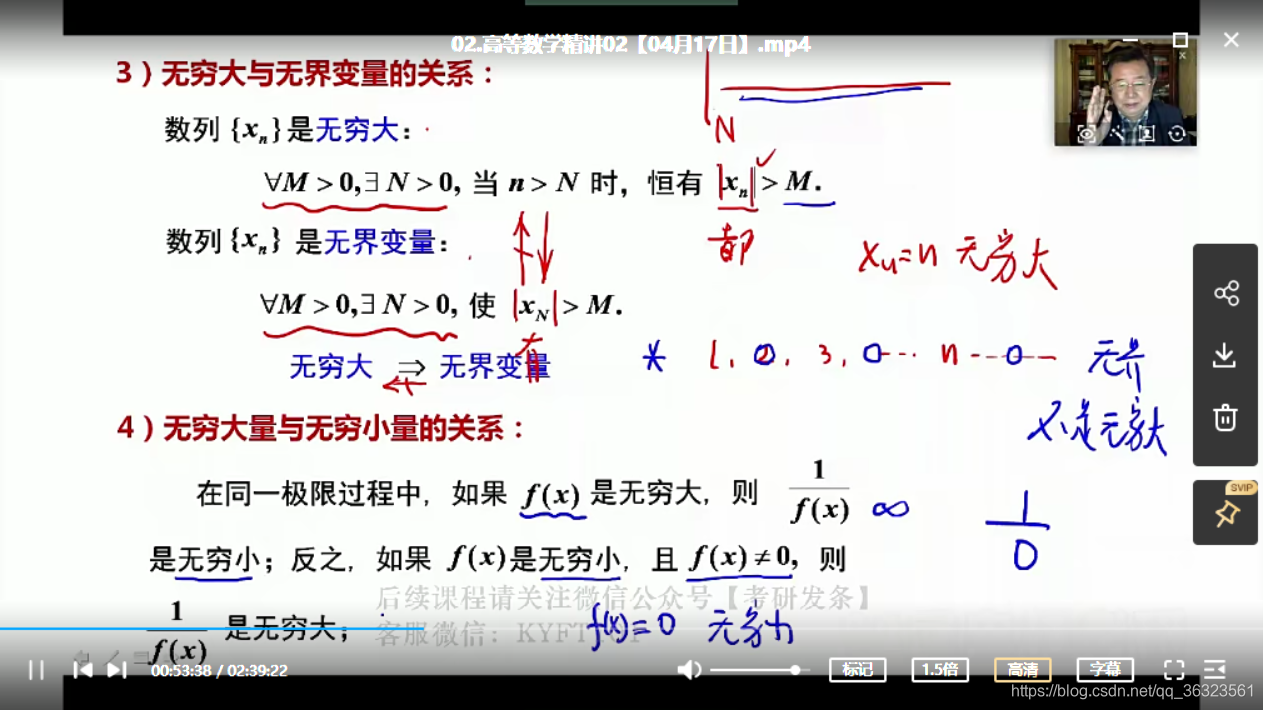 02.高等数学精讲02【04月17日】.mp4
3）无穷大与无界变量的关系：
数列 {xₙ} 是无穷大：
N
∀M > 0, ∃ N > 0, 当 n > N 时，恒有 |xₙ| > M.
都
数列 {xₙ} 是无界变量：
xₙ=n 无穷大
∀M > 0, ∃ N > 0, 使 |x_N| > M.
有
无穷大 ⇒ 无界变量
* 1, 0, 3, 0 ··· n ··· 0 — 无界
不是无穷大
4）无穷大量与无穷小量的关系：
在同一极限过程中，如果 f(x) 是无穷大，则 1/f(x) ∞
1/0
是无穷小；反之，如果 f(x) 是无穷小，且 f(x) ≠ 0, 则
后续课程请关注微信公众号【考研发条】
1/f(x) 是无穷大；
客服微信：
f(x)≡0 无穷小
00:53:38 / 02:39:22
标记
1.5倍
高清
字幕
SVIP
https://blog.csdn.net/qq_36323561